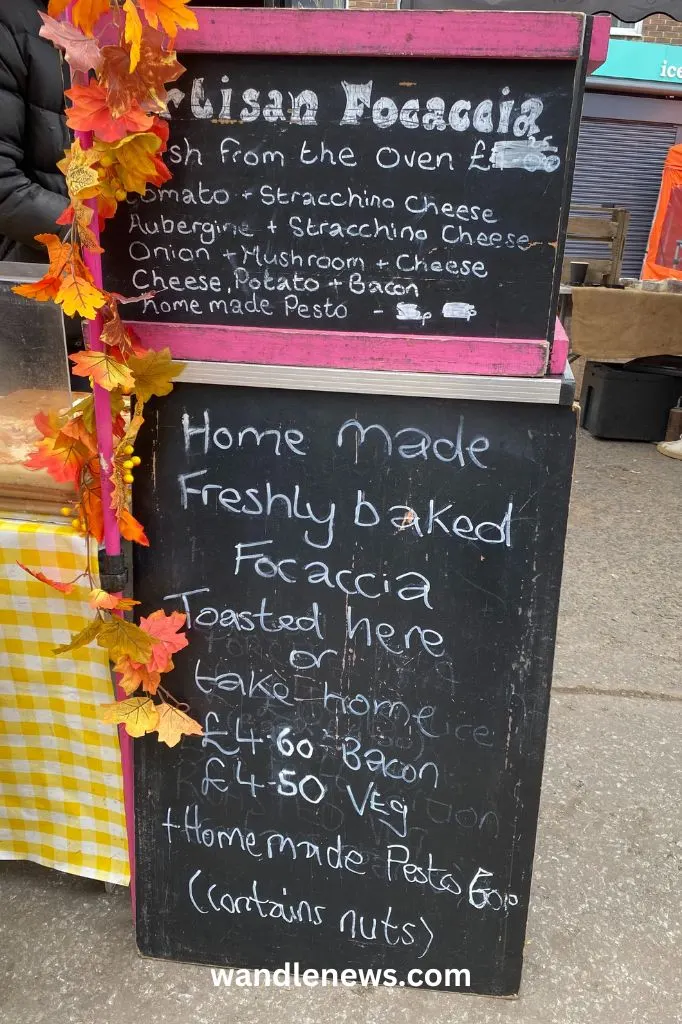 Artisan Focaccia
fresh from the oven £
Tomato + Stracchino Cheese
Aubergine + Stracchino Cheese
Onion + Mushroom + Cheese
Cheese, Potato + Bacon
home made Pesto -
Home made
Freshly baked
Focaccia
Toasted here
or
take home
£4.60 Bacon
£4.50 Veg
+Homemade Pesto 60p
(contains nuts)
wandlenews.com
ice